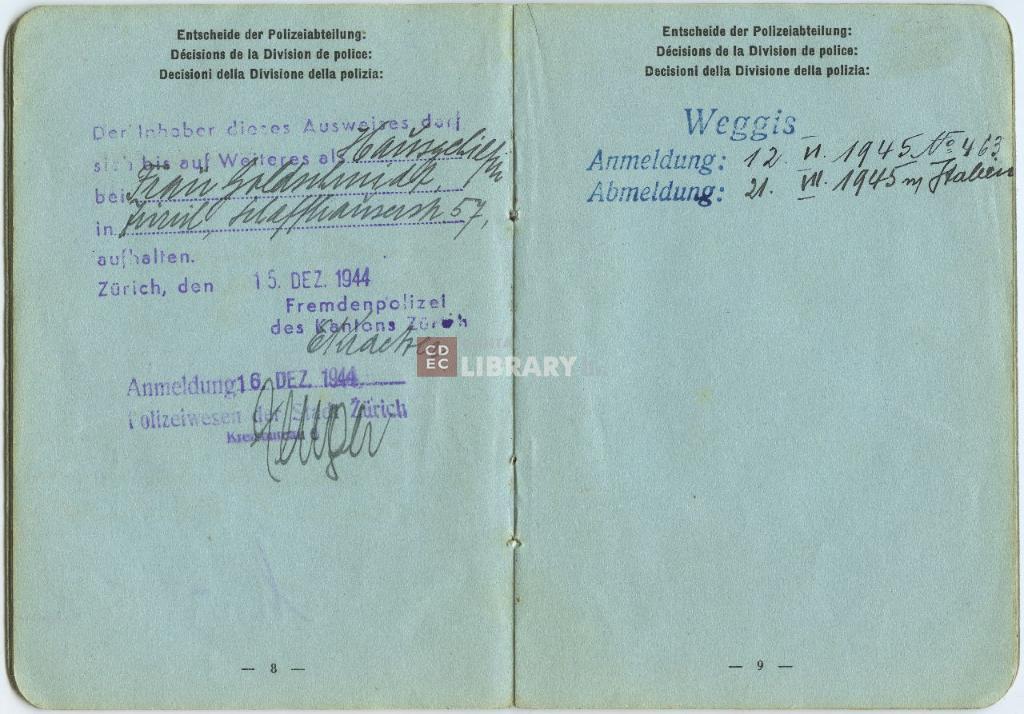 Entscheide der Polizeiabteilung:
Décisions de la Division de police:
Decisioni della Divisione della polizia:
Der Inhaber dieses Ausweises darf
sich bis auf Weiteres als
bei Frau Goldschmidt,
in Zürich, Schaffhauserstr. 57,
aufhalten.
Zürich, den 15. DEZ. 1944
Fremdenpolizei
des Kantons Zürich
Anmeldung 16. DEZ. 1944
Polizeiwesen der Stadt Zürich
Kreisbureau 6
— 8 —
Entscheide der Polizeiabteilung:
Décisions de la Division de police:
Decisioni della Divisione della polizia:
Weggis
Anmeldung: 12. VI. 1945 No 463
Abmeldung: 21. VII. 1945 n/ Italien
— 9 —
CDEC
LIBRARY